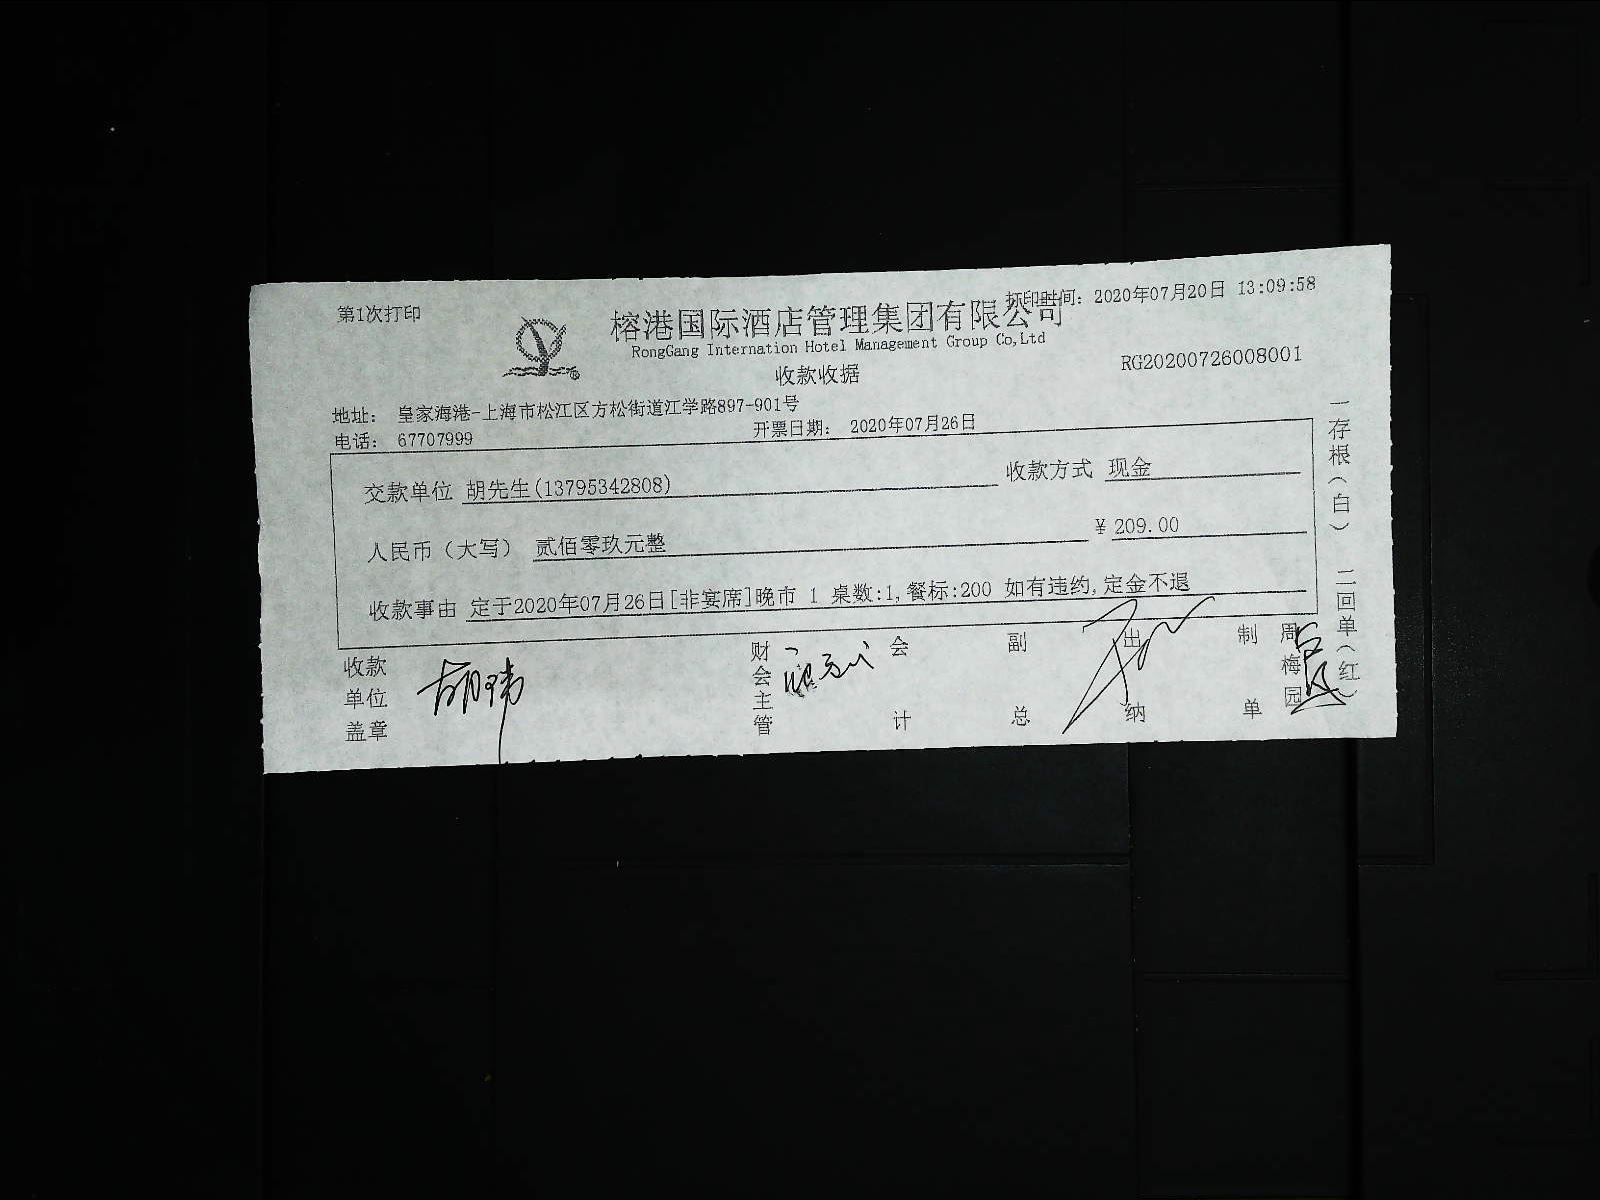 第1次打印
打印时间：2020年07月20日 13:09:58
榕港国际酒店管理集团有限公司
RongGang Internation Hotel Management Group Co,Ltd
收款收据
RG20200726008001
地址： 皇家海港-上海市松江区方松街道江学路897-901号
电话： 67707999
开票日期： 2020年07月26日
交款单位 胡先生(13795342808) 收款方式 现金
人民币（大写） 贰佰零玖元整 ¥ 209.00
收款事由 定于2020年07月26日[非宴席]晚市 1 桌数:1,餐标:200 如有违约,定金不退
收款单位盖章 胡玮 财会主管 会计 副总 出纳 制单 周梅园
一存根（白） 二回单（红）